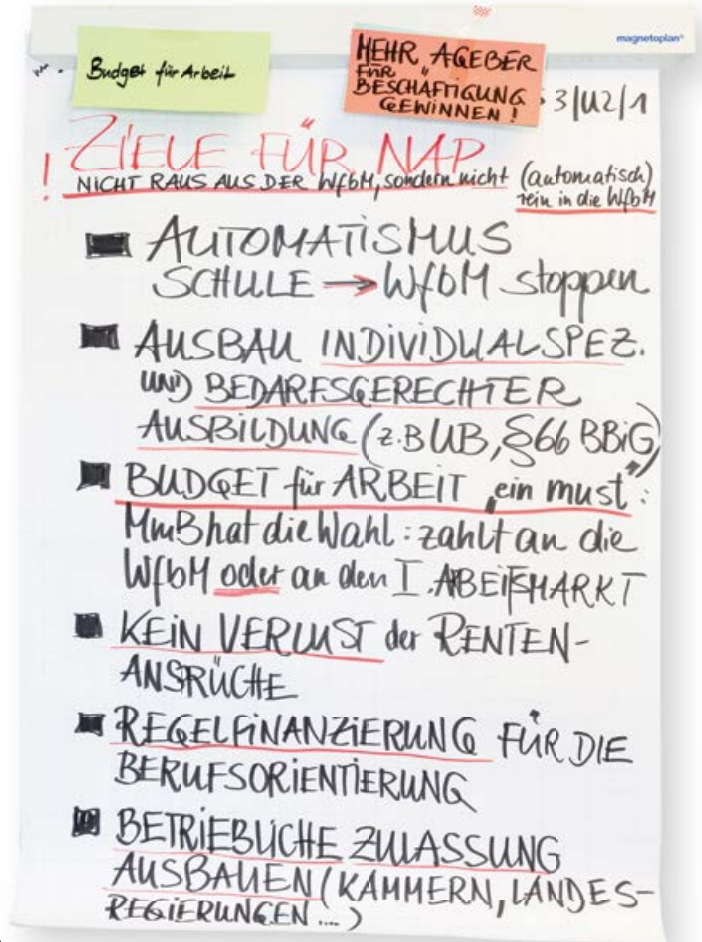 magnetoplan®
Budget für Arbeit
MEHR AGEBER
FÜR
BESCHÄFTIGUNG
GEWINNEN!
3/U2/1
! ZIELE FÜR NAP
NICHT RAUS AUS DER WfbM, sondern nicht (automatisch)
rein in die WfbM
AUTOMATISMUS
SCHULE → WfbM stoppen
AUSBAU INDIVIDUALSPEZ.
UND BEDARFSGERECHTER
AUSBILDUNG (z.B UB, §66 BBiG)
BUDGET für ARBEIT „ein must":
MmB hat die Wahl: zahlt an die
WfbM oder an den I. ABEITSMARKT
KEIN VERLUST der RENTEN-
ANSRÜCHE
REGELFINANZIERUNG FÜR DIE
BERUFSORIENTIERUNG
BETRIEBLICHE ZULASSUNG
AUSBAUEN (KAMMERN, LANDES-
REGIERUNGEN ...)